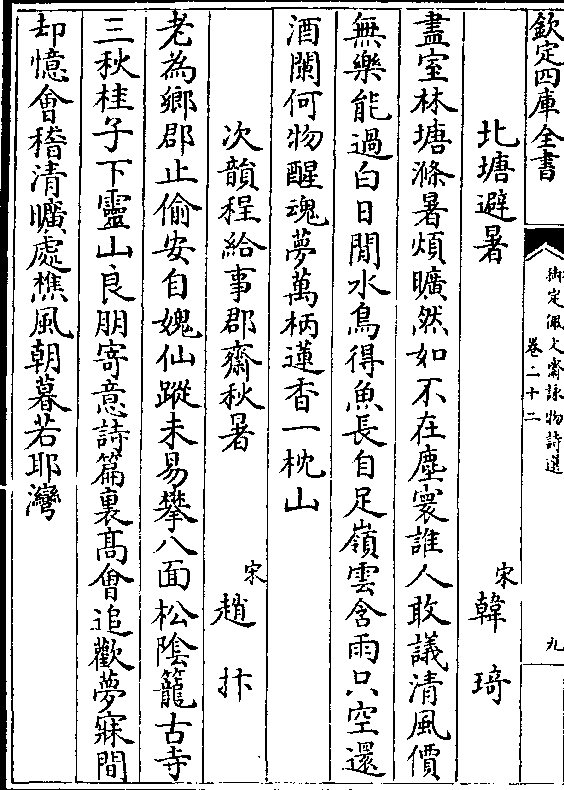 欽定四庫全書
御定佩文齋詠物詩選
卷二十二
九
北塘避暑
宋
韓琦
盡室林塘滌暑煩曠然如不在塵寰誰人敢議清風價
無樂能過白日閒水鳥得魚長自足嶺雲含雨只空還
酒闌何物醒魂夢萬柄蓮香一枕山
次韻程給事郡齋秋暑
宋
趙抃
老為鄉郡止偷安自媿仙蹤未易攀八面松陰籠古寺
三秋桂子下靈山良朋寄意詩篇裏高會追歡夢寐間
却憶會稽清曠處樵風朝暮若耶灣